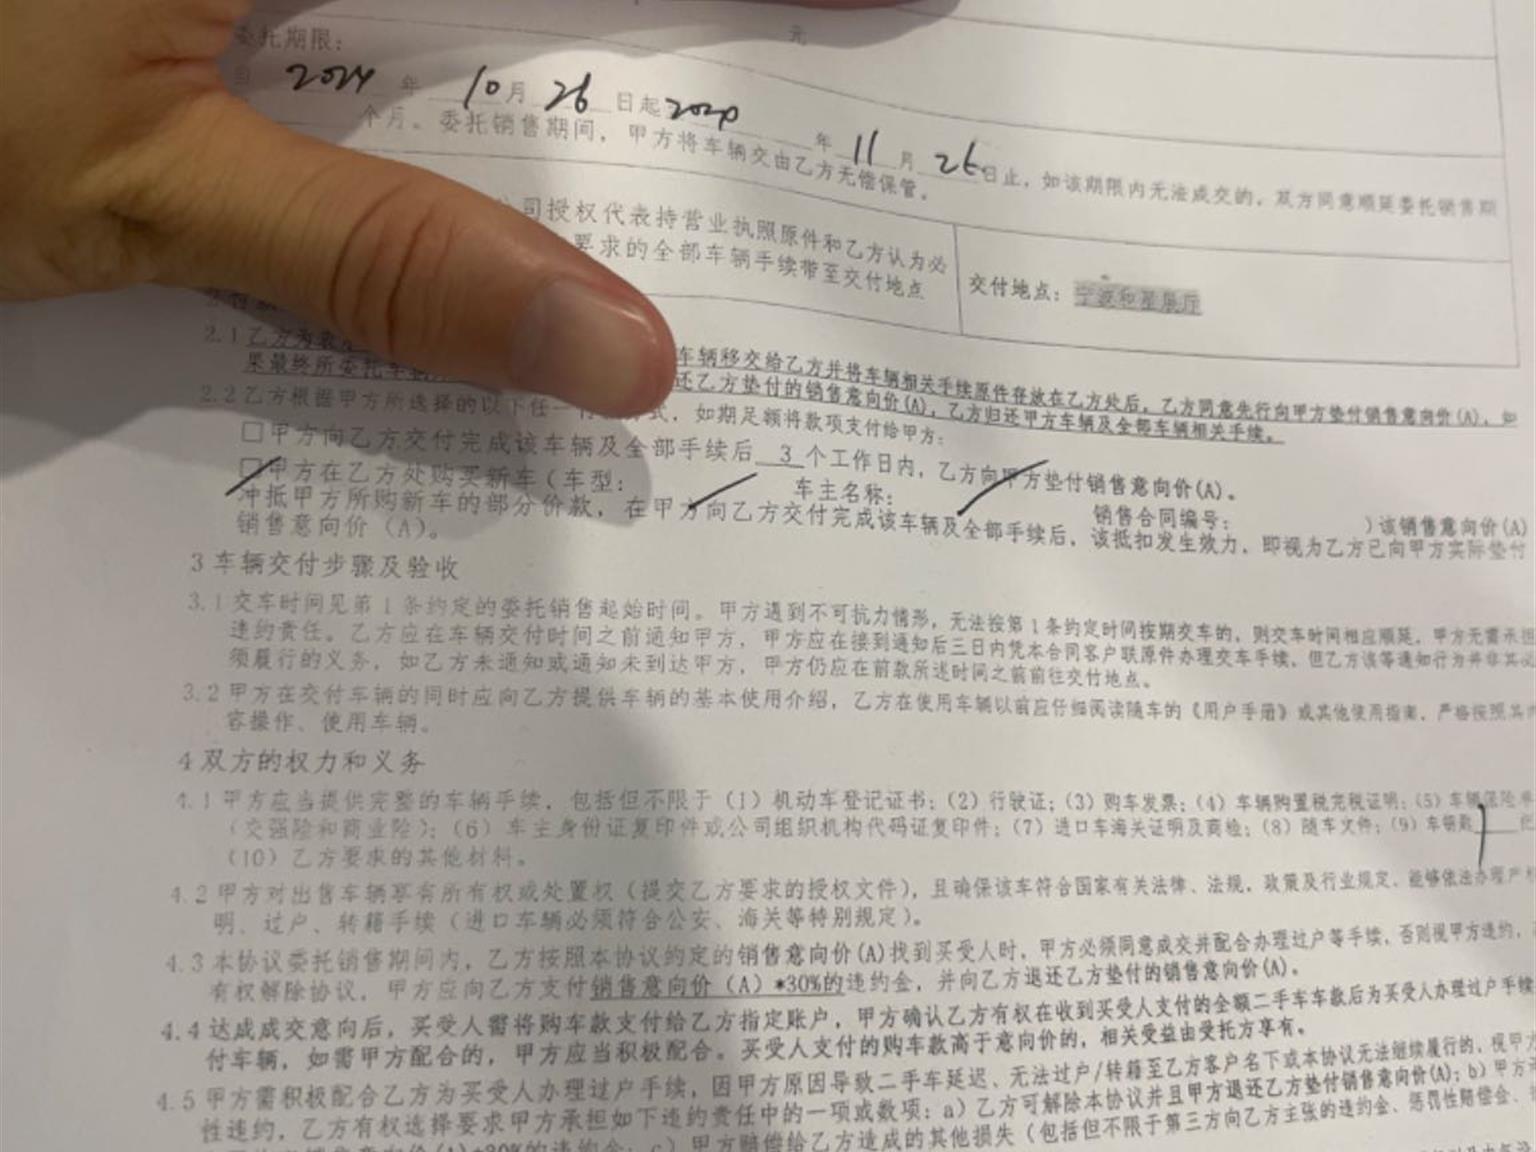 元
委托期限：
自 2024 年 10 月 26 日起 年 11 月 日止，如该期限内无法成交的，双方同意顺延委托销售期
个月。委托销售期间，甲方将车辆交由乙方无偿保管。
公司授权代表持营业执照原件和乙方认为必
要求的全部车辆手续带至交付地点
交付地点：宁波和星展厅
2.1 乙方为 车辆移交给乙方并将车辆相关手续原件存放在乙方处后，乙方同意先行向甲方垫付销售意向价(A)，如
果最终所委托车辆 还乙方垫付的销售意向价(A)，乙方归还甲方车辆及全部车辆相关手续。
2.2 乙方根据甲方所选择的以下任一 式，如期足额将款项支付给甲方：
□甲方向乙方交付完成该车辆及全部手续后 3 个工作日内，乙方向甲方垫付销售意向价(A)。
□甲方在乙方处购买新车（车型： 车主名称： 销售合同编号： ）该销售意向价(A)
冲抵甲方所购新车的部分价款，在甲方向乙方交付完成该车辆及全部手续后，该抵扣发生效力，即视为乙方已向甲方实际垫付
销售意向价（A）。
3 车辆交付步骤及验收
3.1 交车时间见第 1 条约定的委托销售起始时间。甲方遇到不可抗力情形，无法按第 1 条约定时间按期交车的，则交车时间相应顺延，甲方无需承担
违约责任。乙方应在车辆交付时间之前通知甲方，甲方应在接到通知后三日内凭本合同客户联原件办理交车手续，但乙方该等通知行为并非其必
须履行的义务，如乙方未通知或通知未到达甲方，甲方仍应在前款所述时间之前前往交付地点。
3.2 甲方在交付车辆的同时应向乙方提供车辆的基本使用介绍，乙方在使用车辆以前应仔细阅读随车的《用户手册》或其他使用指南，严格按照其内
容操作、使用车辆。
4 双方的权力和义务
4.1 甲方应当提供完整的车辆手续，包括但不限于（1）机动车登记证书；（2）行驶证；（3）购车发票；（4）车辆购置税完税证明；（5）车辆保险单
（交强险和商业险）；（6）车主身份证复印件或公司组织机构代码证复印件；（7）进口车海关证明及商检；（8）随车文件；（9）车钥匙 把
（10）乙方要求的其他材料。
4.2 甲方对出售车辆享有所有权或处置权（提交乙方要求的授权文件），且确保该车符合国家有关法律、法规，政策及行业规定、能够依法办理产权
明、过户、转籍手续（进口车辆必须符合公安、海关等特别规定）。
4.3 本协议委托销售期间内，乙方按照本协议约定的销售意向价(A)找到买受人时，甲方必须同意成交并配合办理过户等手续，否则视甲方违约，
有权解除协议，甲方应向乙方支付销售意向价（A）*30%的违约金，并向乙方退还乙方垫付的销售意向价(A)。
4.4 达成成交意向后，买受人需将购车款支付给乙方指定账户，甲方确认乙方有权在收到买受人支付的全额二手车车款后为买受人办理过户手续
付车辆，如需甲方配合的，甲方应当积极配合。买受人支付的购车款高于意向价的，相关受益由受托方享有。
4.5 甲方需积极配合乙方为买受人办理过户手续，因甲方原因导致二手车延迟、无法过户/转籍至乙方客户名下或本协议无法继续履行的，视甲方
性违约，乙方有权选择要求甲方承担如下违约责任中的一项或数项：a）乙方可解除本协议并且甲方退还乙方垫付销售意向价(A)；b）甲方
销售意向价(A)*30%的违约金；c）甲方赔偿给乙方造成的其他损失（包括但不限于第三方向乙方主张的违约金、惩罚性赔偿金、